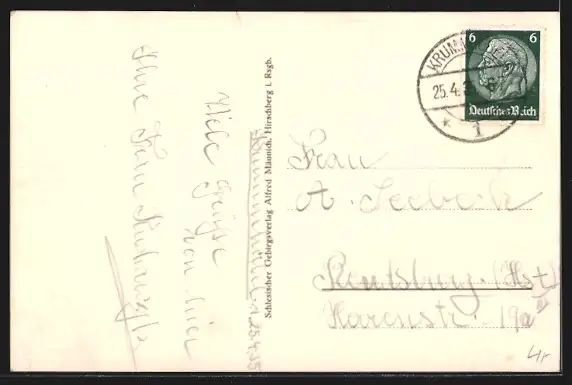 Krummhübel, 25.4.35
Viele Grüsse
von hier
Ihre Frau
Schlesischer Gebirgsverlag Alfred Männich, Hirschberg i. Rsgb.
KRUMMH
25.4.3
* 1
6 6
Deutsches Reich
Frau
A. Seebeck
Rendsburg. (Holst)
str. 19a